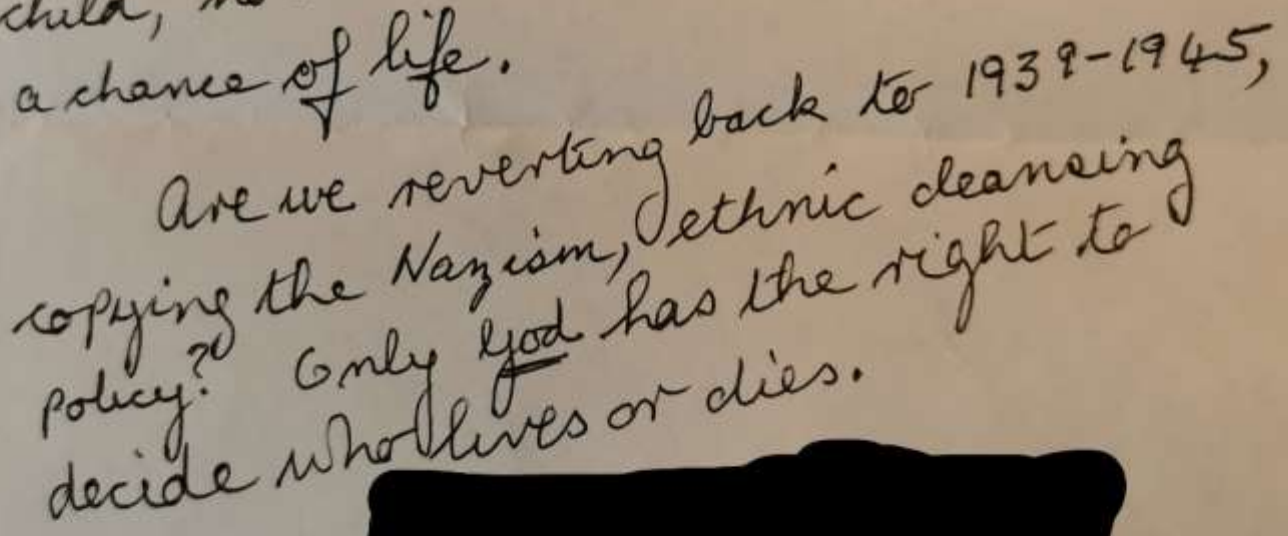 child,
a chance of life.
Are we reverting back to 1939-1945,
copying the Nazism, ethnic cleansing
policy? Only God has the right to
decide who lives or dies.